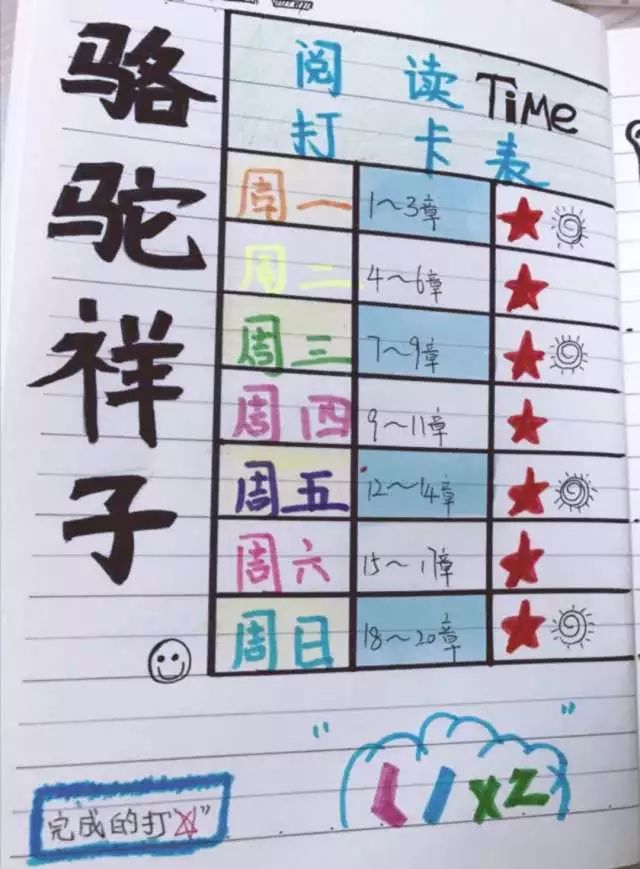 骆驼祥子
阅读 TiMe
打卡表
周一 1～3章
周二 4～6章
周三 7～9章
周四 9～11章
周五 12～14章
周六 15～17章
周日 18～20章
完成的打“☆”
" L / xz "